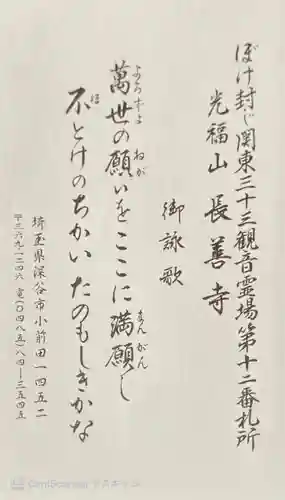 ぼけ封じ関東三十三観音霊場第十二番札所
光福山 長善寺
御詠歌
萬世の願いをここに満願し
よろずよ ねが まんがん
不とけのちかいたのもしきかな
ほ
埼玉県深谷市小前田一四五二
〒三六九ー一二四六 電(〇四八五)八四ー三五四五
CamScanner